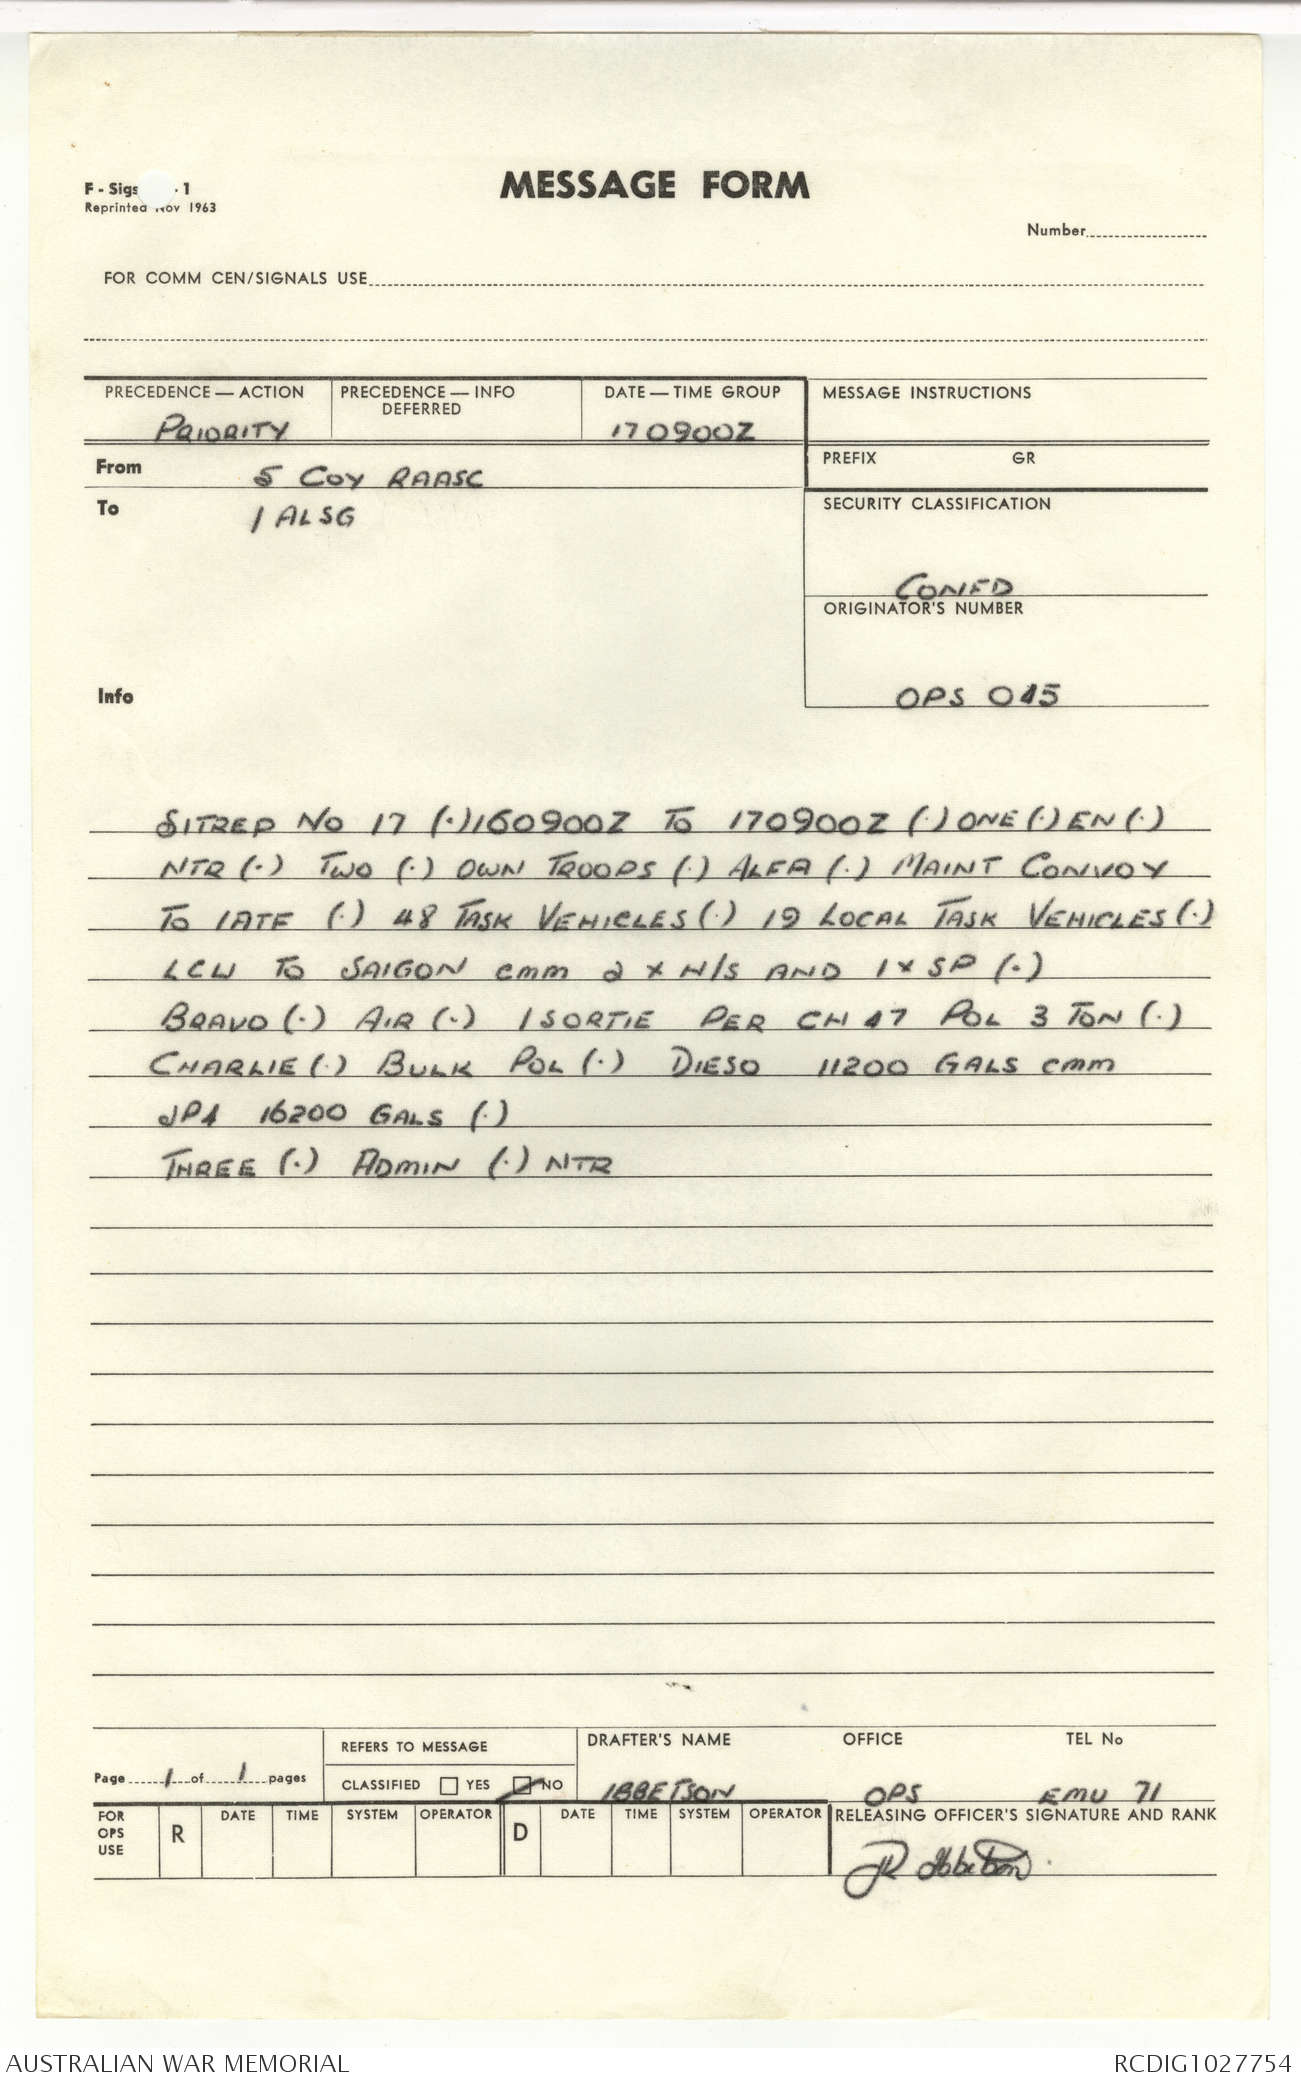 F - Sigs 1
Reprinted Nov 1963
MESSAGE FORM
Number
FOR COMM CEN/SIGNALS USE
PRECEDENCE — ACTION
PRIORITY
PRECEDENCE — INFO
DEFERRED
DATE — TIME GROUP
170900Z
MESSAGE INSTRUCTIONS
From 5 COY RAASC
PREFIX GR
To 1 ALSG
SECURITY CLASSIFICATION
CONFD
ORIGINATOR'S NUMBER
OPS 045
Info
SITREP NO 17 (.) 160900Z TO 170900Z (.) ONE (.) EN (.)
NTR (.) TWO (.) OWN TROOPS (.) ALFA (.) MAINT CONVOY
TO 1ATF (.) 48 TASK VEHICLES (.) 19 LOCAL TASK VEHICLES (.)
LCW TO SAIGON cmm 2 x W/S AND 1 x SP (.)
BRAVO (.) AIR (.) 1 SORTIE PER CH 47 POL 3 TON (.)
CHARLIE (.) BULK POL (.) DIESO 11200 GALS cmm
JP4 16200 GALS (.)
THREE (.) ADMIN (.) NTR
Page 1 of 1 pages
REFERS TO MESSAGE
CLASSIFIED YES NO
DRAFTER'S NAME
IBBETSON
OFFICE
OPS
TEL No
EMU 71
FOR OPS USE
R
DATE TIME SYSTEM OPERATOR
D
DATE TIME SYSTEM OPERATOR
RELEASING OFFICER'S SIGNATURE AND RANK
JR Ibbetson
AUSTRALIAN WAR MEMORIAL
RCDIG1027754